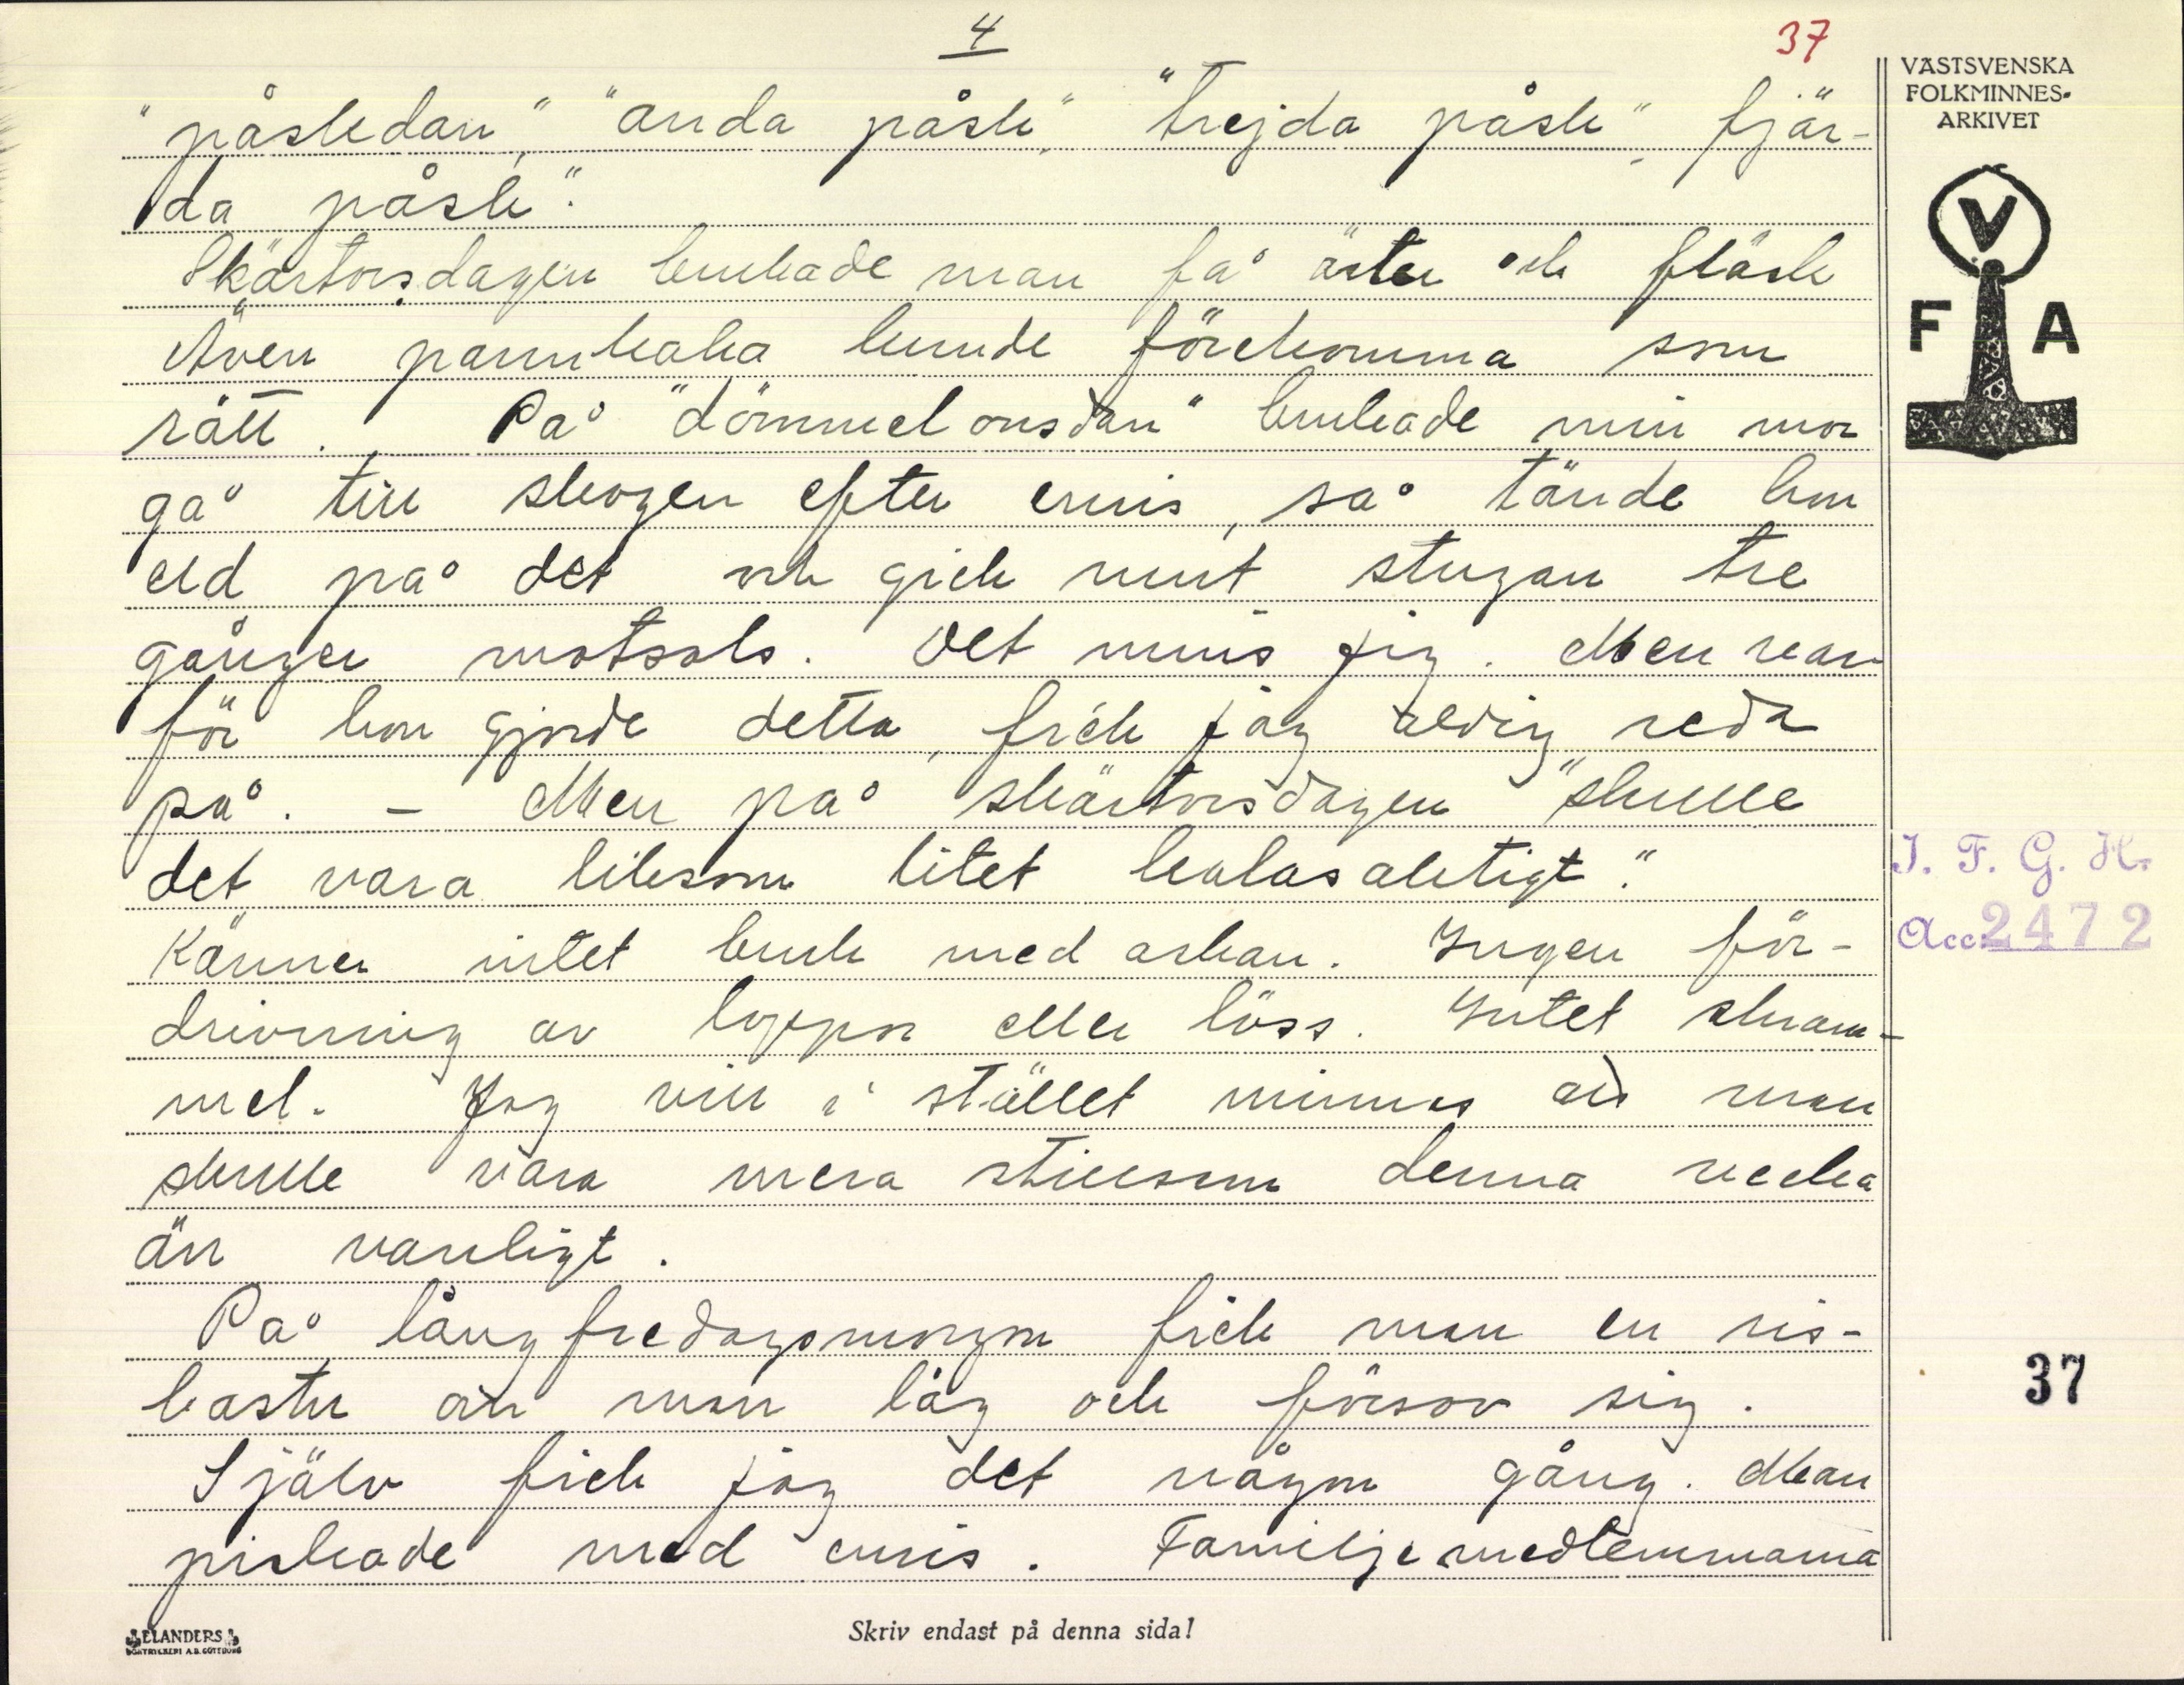 4
37
"påskedan", "anda påsk", "trejda påsk", fjär-
da påsk".
Skärtorsdagen brukade man få ärter och fläsk
Även pannkaka kunde förekomma som
rätt. På "dömmelonsdan" brukade min mor
gå till skogen efter enris, så tände hon
eld på det och gick runt stugan tre
gånger motsols. Det minns jag. Men var-
för hon gjorde detta, fick jag aldrig reda
på. - Men på skärtorsdagen "skulle
det vara liksom litet kalasaktigt".
Känner intet bruk med askan. Ingen för-
drivning av loppor eller löss. Intet skram-
mel. Jag vill i stället minnas att man
skulle vara mera stillsam denna vecka
än vanligt.
På långfredagsmorgon fick man en ris-
bastu om man låg och försov sig.
Själv fick jag det någon gång. Man
piskade med enris. Familjemedlemmarna
VÄSTSVENSKA
FOLKMINNES-
ARKIVET
V
F A
I. F. G. H.
Acc. 2472
37
ELANDERS
BOKTRYCKERI A.B. GÖTEBORG
Skriv endast på denna sida!